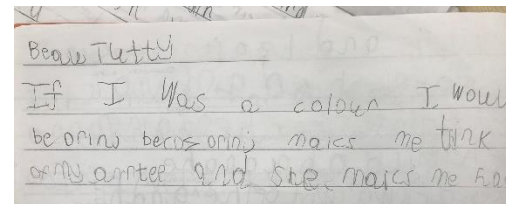 Beaw Tutty
If I Was a colour I woul
be oring becuse oring maics me tink
of my anntee and she maics me ha